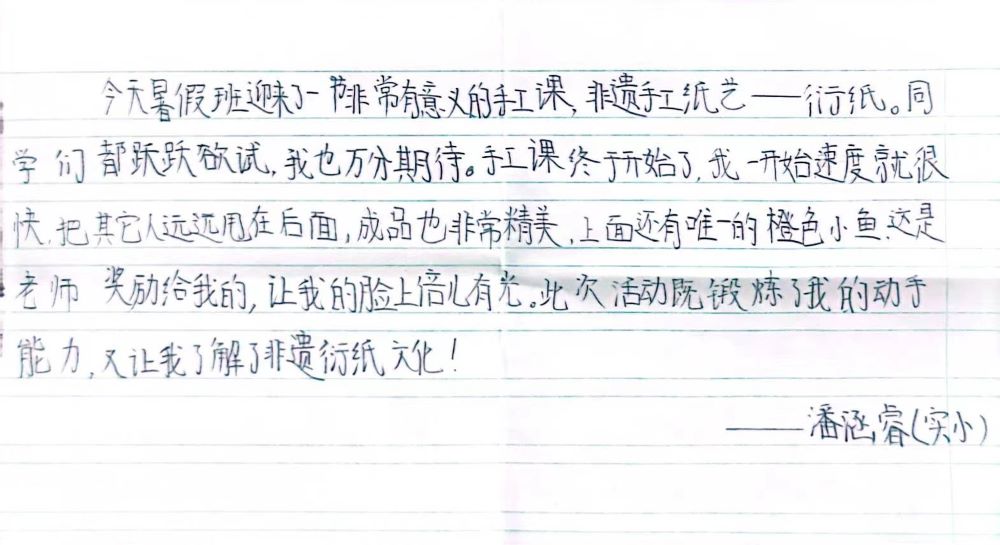 今天暑假班迎来了一节非常有意义的手工课,非遗手工纸艺——衍纸。同
学们都跃跃欲试,我也万分期待。手工课终于开始了,我一开始速度就很
快,把其它人远远甩在后面,成品也非常精美,上面还有唯一的橙色小鱼,这是
老师奖励给我的,让我的脸上倍儿有光。此次活动既锻炼了我的动手
能力,又让我了解了非遗衍纸文化!
——潘涵睿(实小)